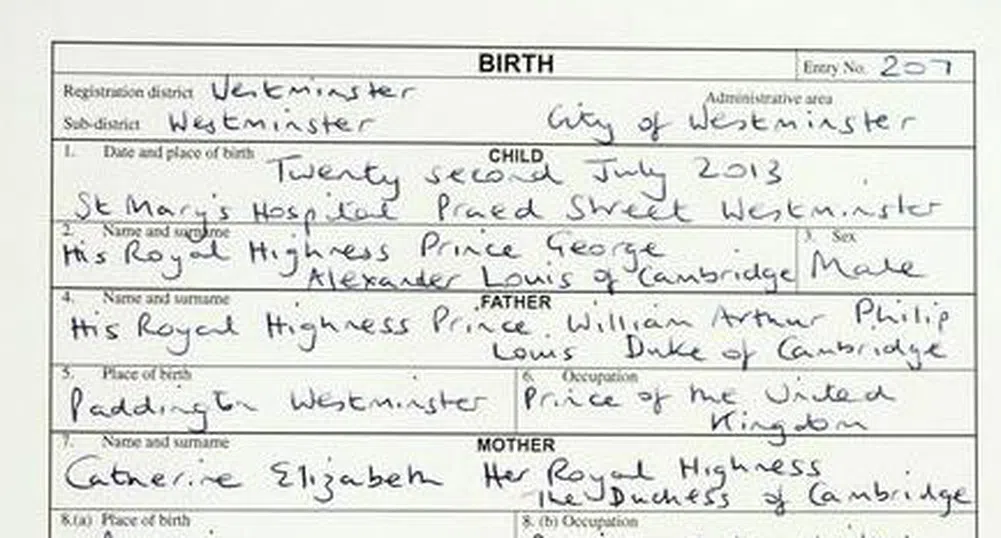 BIRTH Entry No. 207
Registration district Westminster
Administrative area
Sub-district Westminster City of Westminster
CHILD
1. Date and place of birth
Twenty second July 2013
St Mary's Hospital Praed Street Westminster
2. Name and surname 3. Sex
His Royal Highness Prince George
Alexander Louis of Cambridge Male
FATHER
4. Name and surname
His Royal Highness Prince William Arthur Philip
Louis Duke of Cambridge
5. Place of birth 6. Occupation
Paddington Westminster Prince of the United
Kingdom
MOTHER
7. Name and surname
Catherine Elizabeth Her Royal Highness
The Duchess of Cambridge
8.(a) Place of birth 8. (b) Occupation